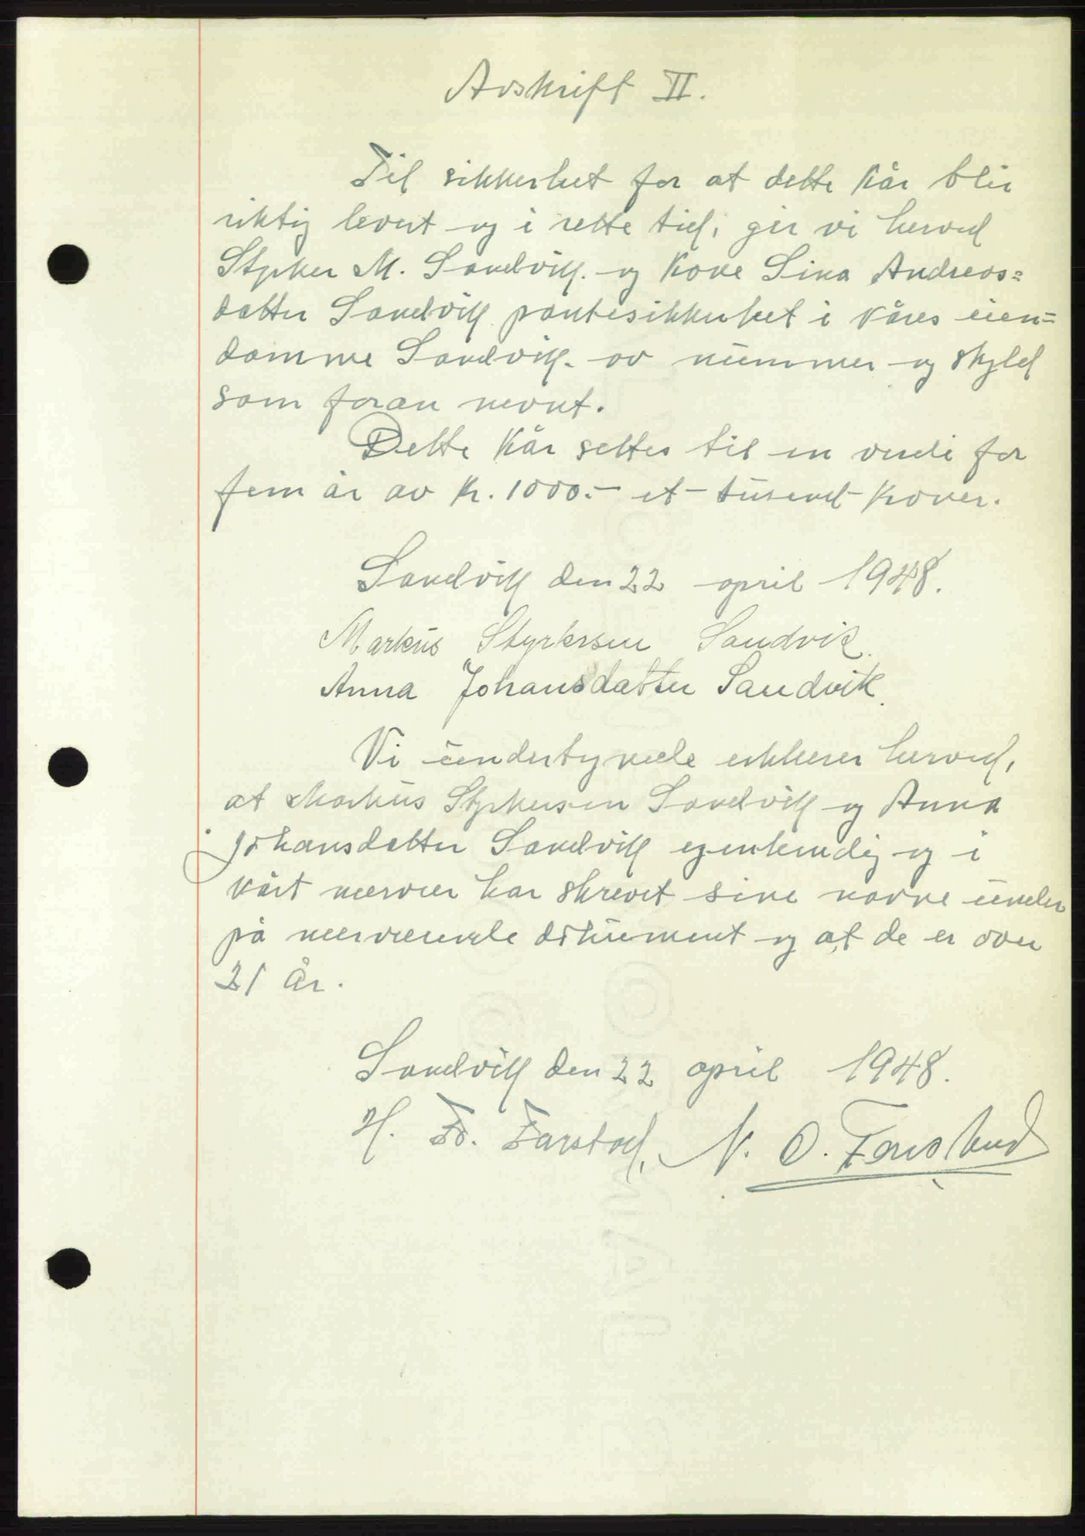 Avskrift II.
Til sikkerhet for at dette kår blir
riktig levert og i rette tid, gir vi herved
Styrker M. Sandvik. og kone Lina Andreas=
datter Sandvik pantesikkerhet i våres eien=
domme Sandvik. av nummer og skyld
som foran nevnt.
Dette kår settes til en verdi for
fem år av kr. 1000.- et-tusend-kroner.
Sandvik den 22 april 1948.
Markus Styrkersen Sandvik.
Anna Johansdatter Sandvik.
Vi undertegnede erklærer herved,
at Markus Styrkersen Sandvik og Anna
Johansdatter Sandvik egenhendig og i
vårt nærvær har skrevet sine navne under
på nærværende dokument og at de er over
21 år.
Sandvik den 22 april 1948.
H. Fr. Farstad, N. O.